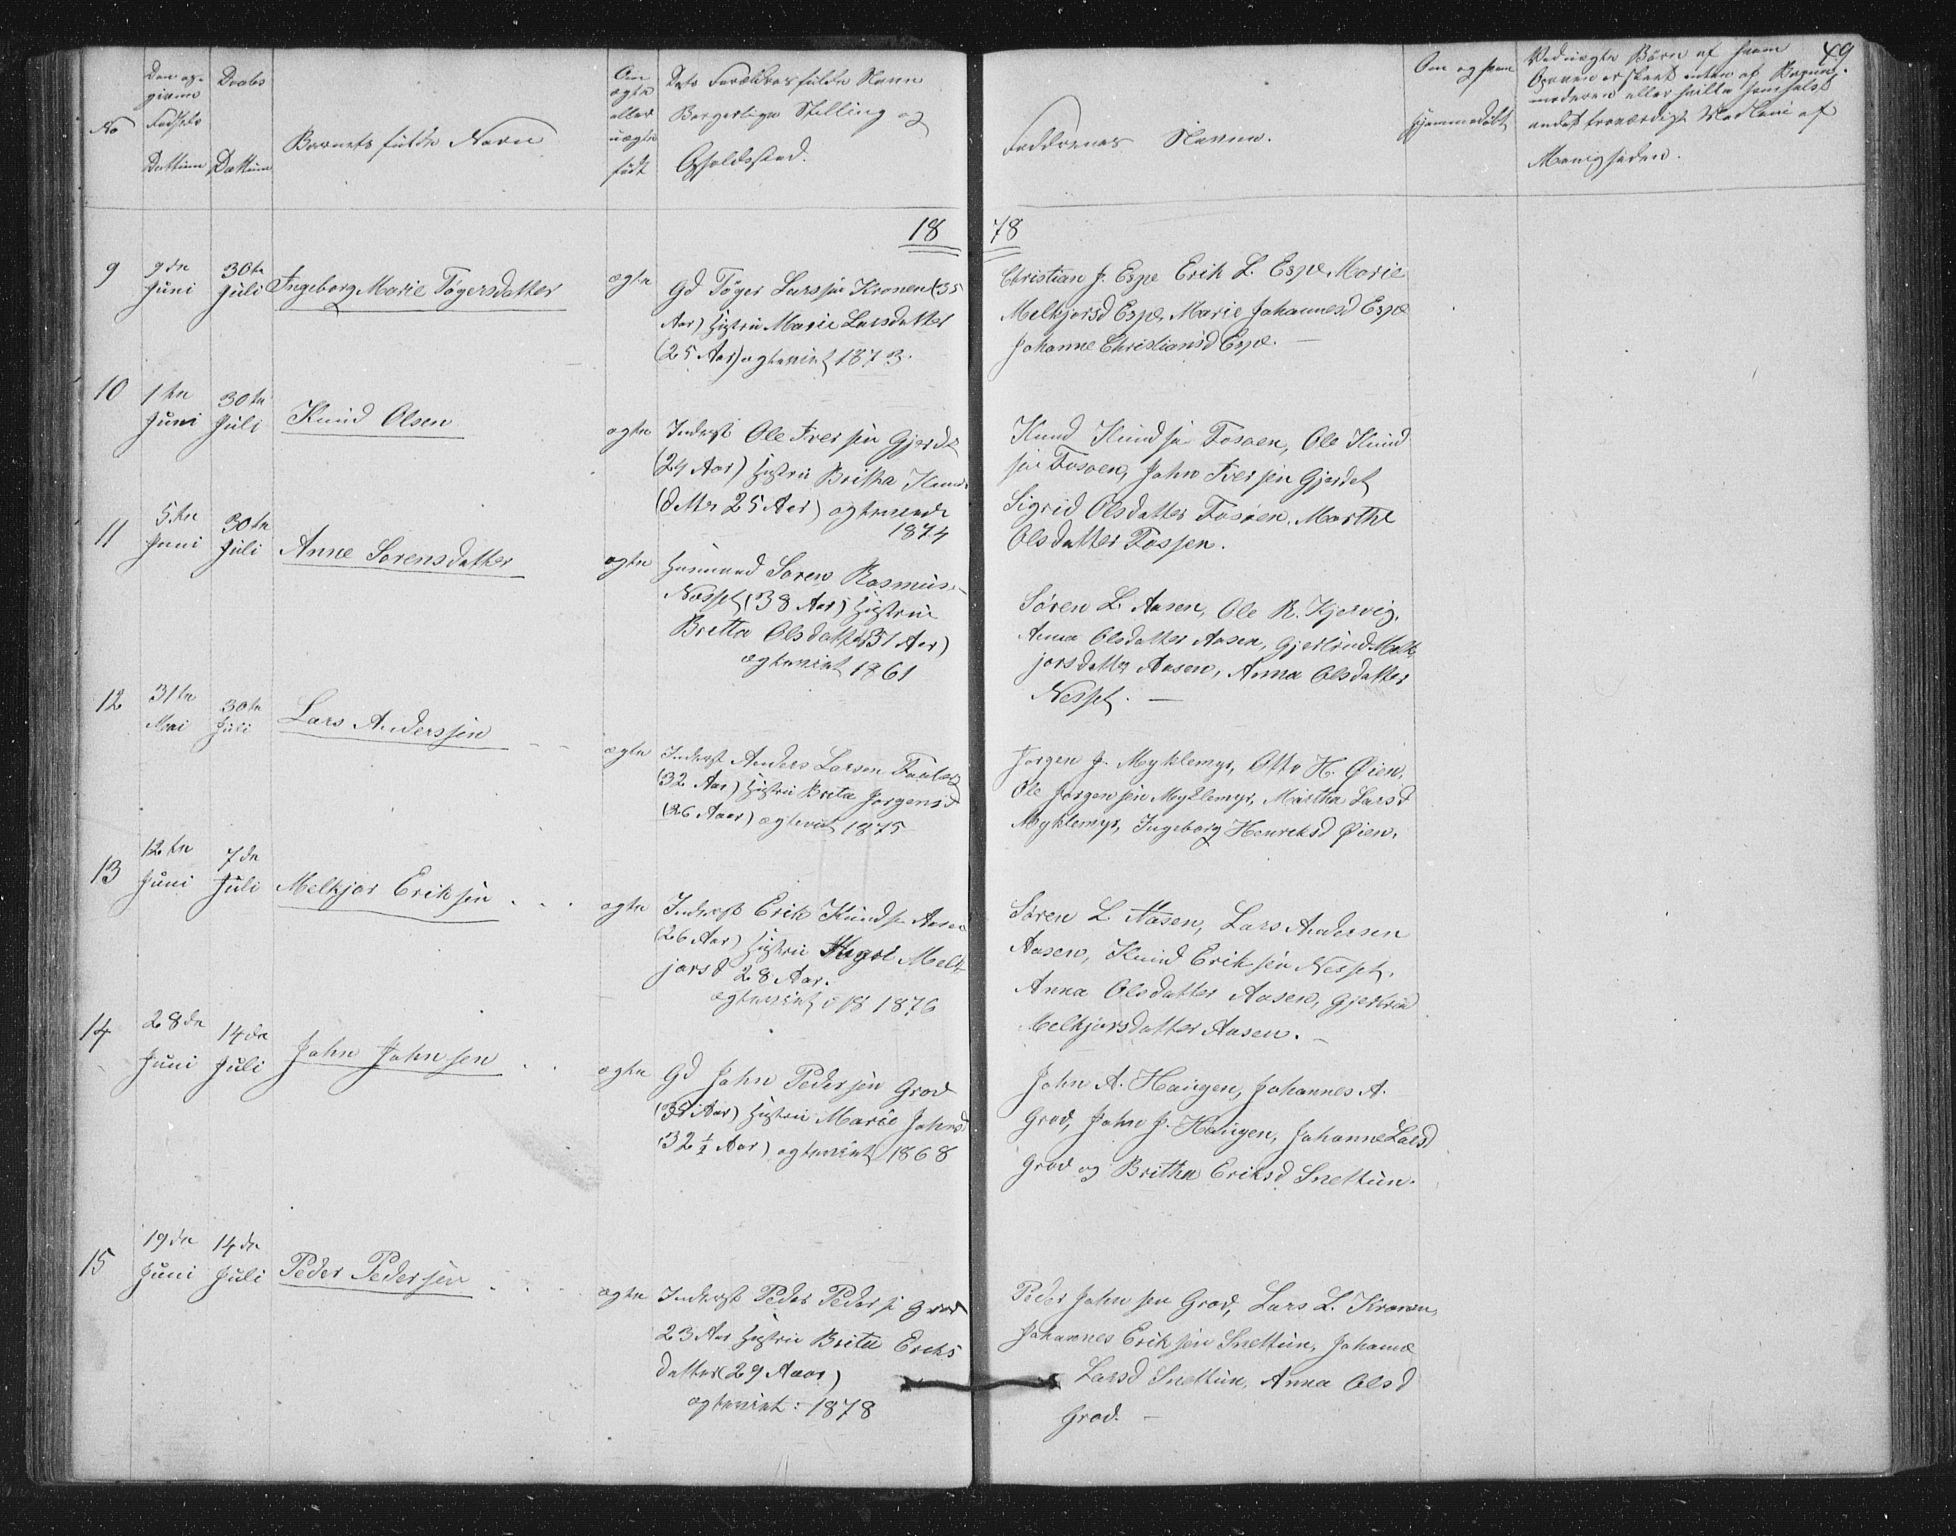 49
No
Den op-
givne
Fødsels
Dattum
Daabs
Dattum
Barnets fulde Navn
Om
ægte
eller
uægte
født
Dets Forældres fulde Navn
Borgerlige Stilling og
Opholdssted.
Faddernes Navne.
Om og hvem
hjemmedøbt
Ved uægte Børn af hvem
Opgaven er skeet enten af Barne-
moderen eller hvilke somhelst
andet troværdigt Medlem af
Menigheden.
18 78
9
9de
Juni
30te
Juli
Ingeborg Marie Tøgersdatter
ægte
Gd Tøger Larssen Kronen (35
Aar) Hustru Marie Larsdatter
(25 Aar) ægteviet 1873.
Christian J. Espe Erik L. Espe, Marie
Melkjorsd Espe, Marie Johannesd Espe
Johanne Christiansd Espe. —
10
1ste
Juni
30te
Juli
Knud Olsen
ægte
Inderst Ole Iversen Gjerde
(24 Aar) Hustru Britha Knuds
(datter 25 Aar) ægteviede
1874
Knud Knudsen Fosøen, Ole Knud
sen Fosøen, John Iversen Gjerdet
Sigrid Olsdatter Fosøen, Marthe
Olsdatter Fosøen.
11
5te
Juni
30te
Juli
Anne Sørensdatter
ægte
Huusmand Søren Rasmus.
Nesset (38 Aar) Hustru
Britta Olsdatter (51 Aar)
ægteviet 1861
Søren L. Aasen, Ole R. Kjørvig,
Anna Olsdatter Aasen, Gjertrud Melk
jorsdatter Aasen, Anna Olsdatter
Nesset. —
12
31te
Mai
30te
Juli
Lars Anderssen
ægte
Inderst Anders Larsen
(32 Aar) Hustru Brita Jørgensd
(26 Aar) ægteviet 1875
Jørgen J. Myklemyr, Otto H. Øien,
Ole Jørgensen Myklemyr, Martha Larsd
Myklemyr, Ingeborg Henriksd Øien.
13
12te
Juni
7de
Juli
Melkjor Eriksen
ægte
Inderst Erik Knuds. Aasen
(26 Aar) Hustru Melk-
jorsd 28 Aar.
ægteviet 1876
Søren L. Aasen, Lars Andersen
Aasen, Knud Eriksen Nesset,
Anna Olsdatter Aasen, Gjertrud
Melkjorsdatter Aasen. —
14
28de
Juni
14de
Juli
John Johnsen
ægte
Gd John Pedersen Grov
Aar) Hustru Marie Johnsd
(32 ½ Aar) ægteviet 1868
John A. Haugen, Johannes A.
Grov, John J. Haugen, Johanne Larsd
Grov og Britha Eriksd Snettun.
15
19de
Juni
14de
Juli
Peder Pedersen
ægte
Inderst Peder Peders. Grov
23 Aar Hustru Brita Eriks
datter (29 Aar)
ægteviet: 1878
Peder Johnsen Grov, Lars L. Kronen,
Johannes Eriksen Snettun, Johanne
Larsd Snettun, Anna Olsd
Grov. —